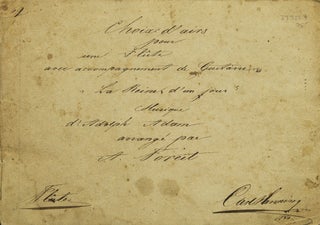 Choix d'airs
pour
une Flûte
avec accompagnement de Guitarre
La Reine d'un jour
Musique
d'Adolph Adam
arrangé par
A
Flûte
Carl